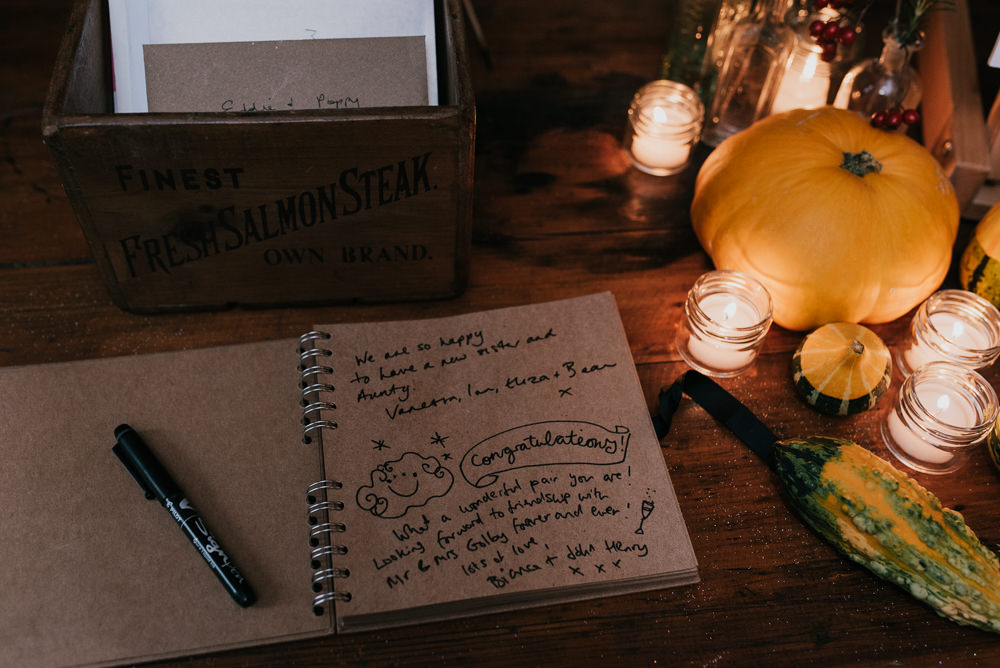 Eddie & Poppy
FINEST
FRESH SALMON STEAK.
OWN BRAND.
We are so happy
to have a new sister and
Aunty.
Vanessa, Ian, Eliza + Bear
x
Congratulations!
What a wonderful pair you are!
Looking forward to friendship with
Mr & Mrs Golby forever and ever!
lots of love,
Bianca + John Henry
x x x